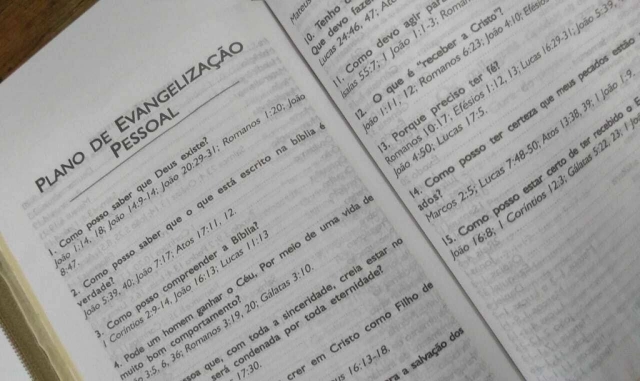 PLANO DE EVANGELIZAÇÃO
PESSOAL
1. Como posso saber que Deus existe?
João 1:14, 18; João 14.9-14; João 20:29-31; Romanos 1:20; João
8:47.
2. Como posso saber que o que está escrito na bíblia é
verdade?
João 5:39, 40; João 7:17; Atos 17:11, 12.
3. Como posso compreender a Bíblia?
I Coríntios 2:9-14, João 16:13; Lucas 11:13
4. Pode um homem ganhar o Céu, Por meio de uma vida de
muito bom comportamento?
3:5, 6, 36; Romanos 3:19, 20; Gálatas 3:10.
que, com toda a sinceridade, creia estar no
será condenada por toda eternidade?
17:30.
crer em Cristo como Filho de
16:13-18.
a salvação dos
Mateus
10. Tenho
Que devo
Lucas 24-46, 47;
11. Como devo agir
Isaías 55:7; I João 1:1-3;
12. O que é "receber a Cristo"?
João 1:11, 12; Romanos 6:23; João 4:10; Efésios
13. Porque preciso ter fé?
Romanos 10-17; Efésios 1:12, 13; Lucas 16:29-31; João 5:39,
João 4:50; Lucas 17:5.
14. Como posso ter certeza que meus pecados estão
ados?
Marcos 2:5; Lucas 7:48-50; Atos 13:38, 39; I João 1:9
15. Como posso estar certo de ter recebido o
João 16:8; I Coríntios 12:3; Gálatas 5:22, 23; I